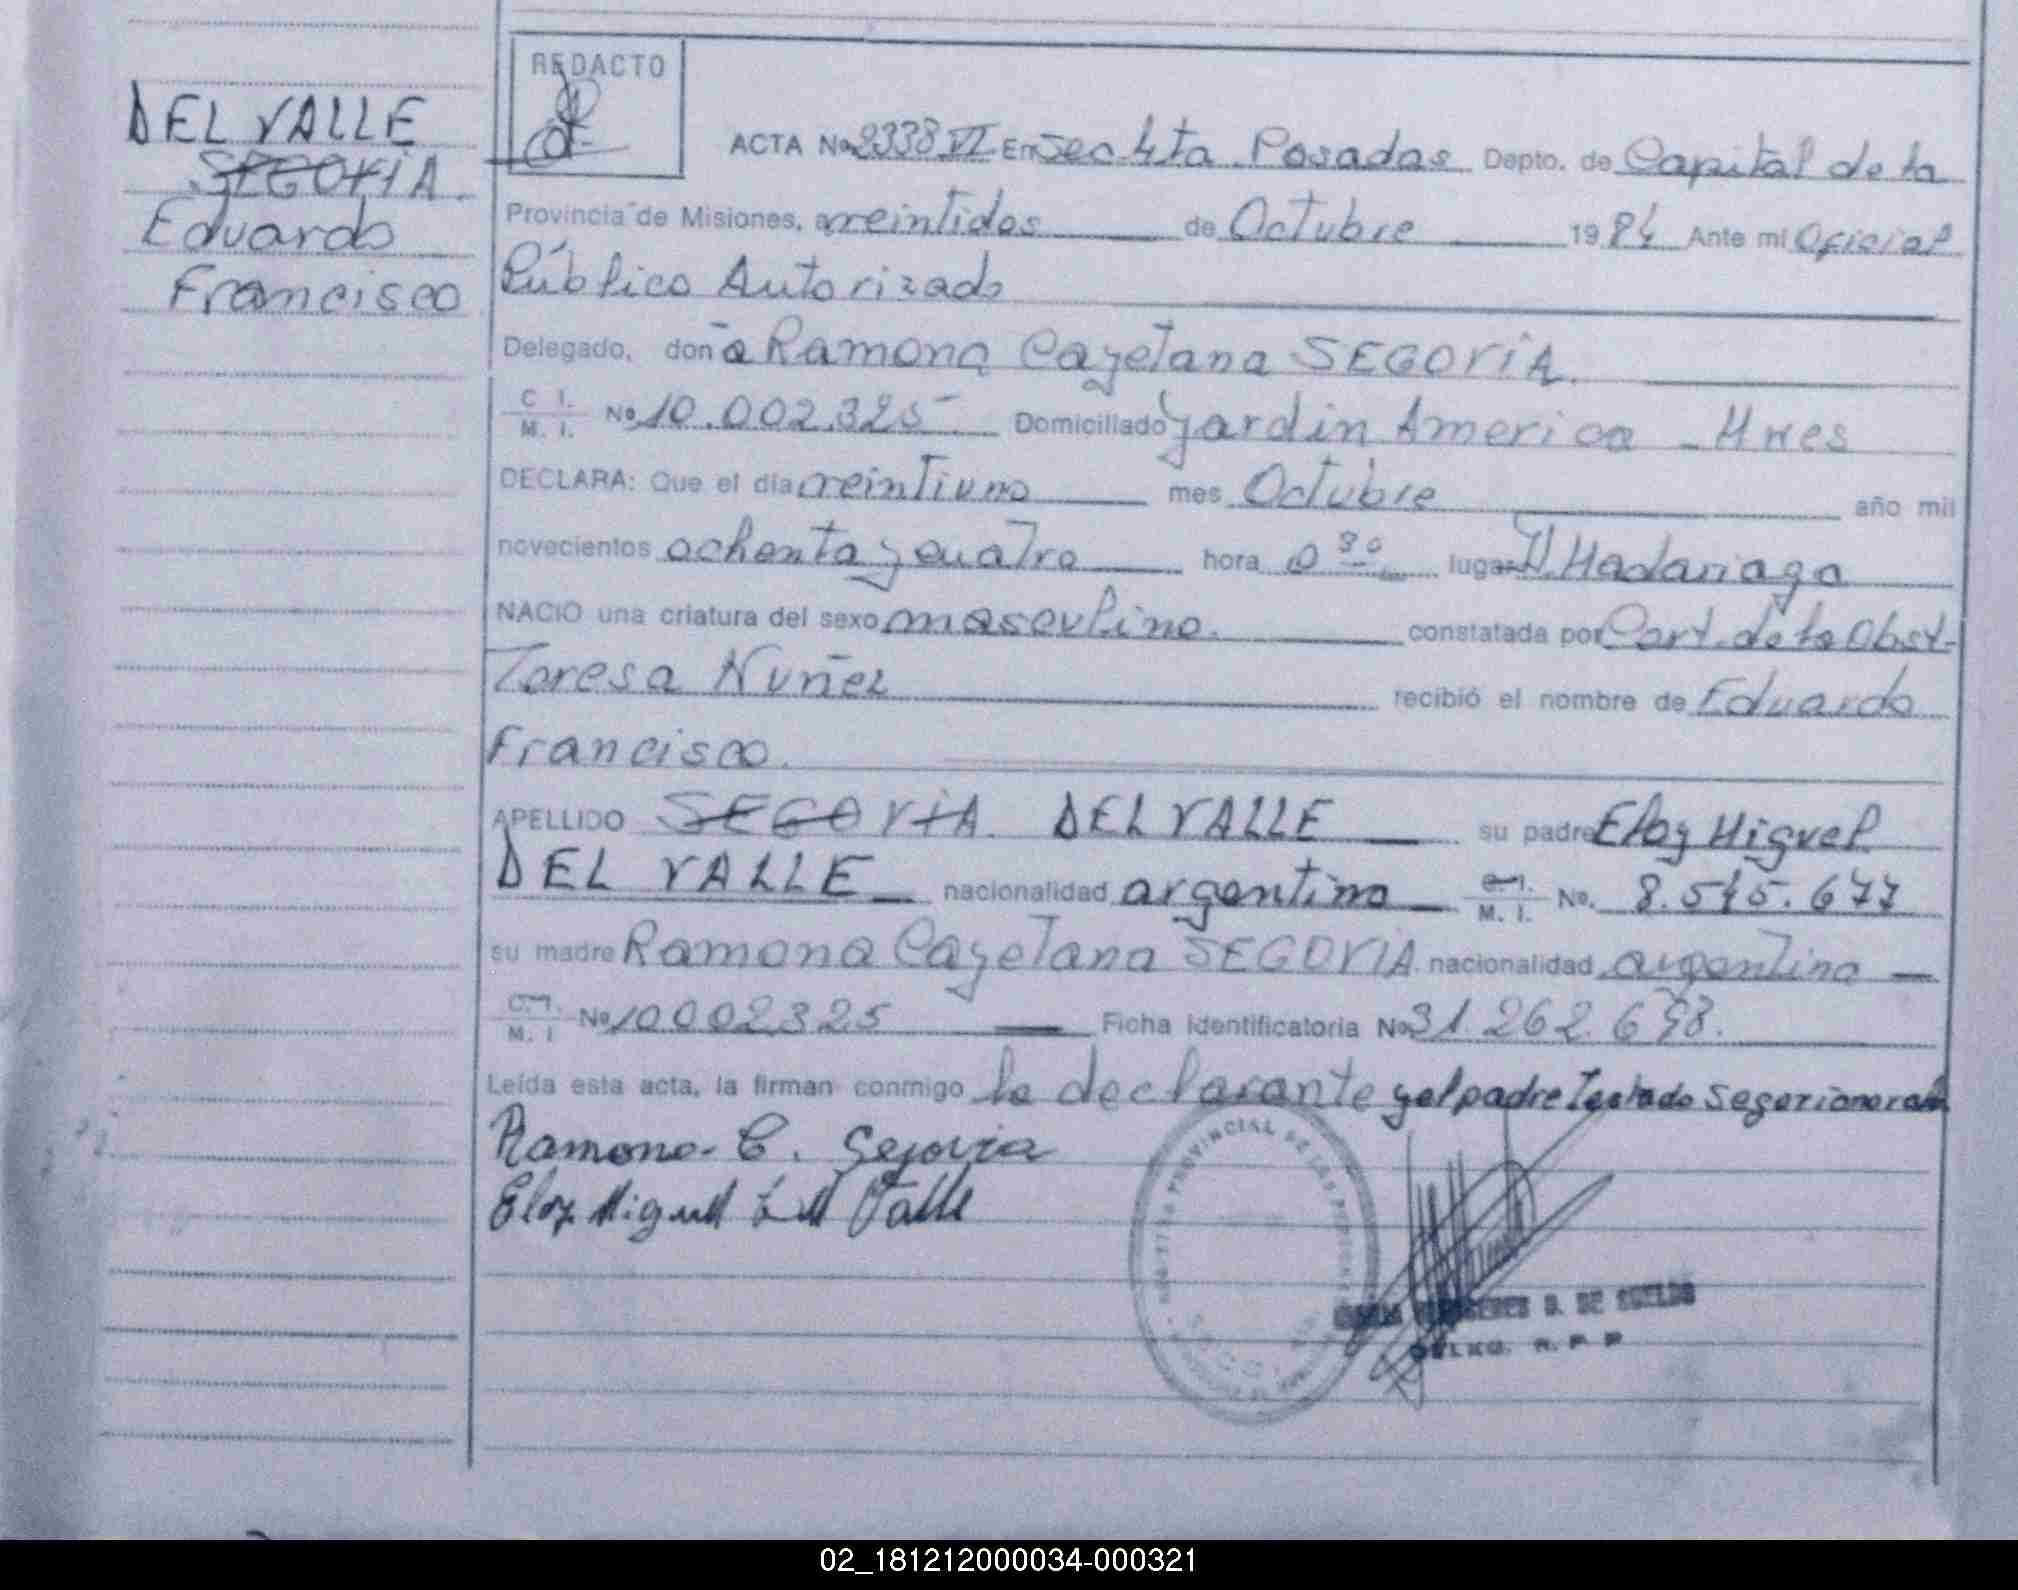 DEL VALLE
SEGOVIA.
Eduardo
Francisco
REDACTO
ACTA No 2338 VI En Sec 4ta Posadas Depto. de Capital de la
Provincia de Misiones, a veintidos de Octubre 1984 Ante mi Oficial
Público Autorizado
Delegado, doña Ramona Cayetana SEGOVIA.
C I.
M. I. No 10.002.325 Domiciliado Jardin America - Mnes
DECLARA: Que el día veintiuno mes Octubre año mil
novecientos ochenta y cuatro hora 0 30 lugar H. Madariaga
NACIO una criatura del sexo masculino. constatada por Cert. de la Obst.
Teresa Nuñez recibió el nombre de Eduardo
Francisco.
APELLIDO SEGOVIA. DEL VALLE su padre Eloy Miguel
DEL VALLE nacionalidad argentino C.I. M. I. No. 8.545.677
su madre Ramona Cayetana SEGOVIA. nacionalidad argentina
C.I. M. I No 10002325 Ficha Identificatoria No 31.262.698.
Leída esta acta, la firman conmigo la declarante y el padre Testado Segovia no vale
Ramona C. Segovia
Eloy Miguel Del Valle
PROVINCIAL DE LAS PERSONAS
D. DE SUELDO
R. P. P
02_181212000034-000321